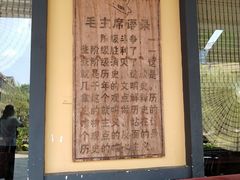 毛主席语录
阶级斗争，一
些阶级胜利了，一
些阶级消灭了。这
就是历史，这就是
几千年的文明史。
拿这个观点解释历
史的就叫做历史的
唯物主义，站在这
个观点的反面的是
历史的唯心主义。